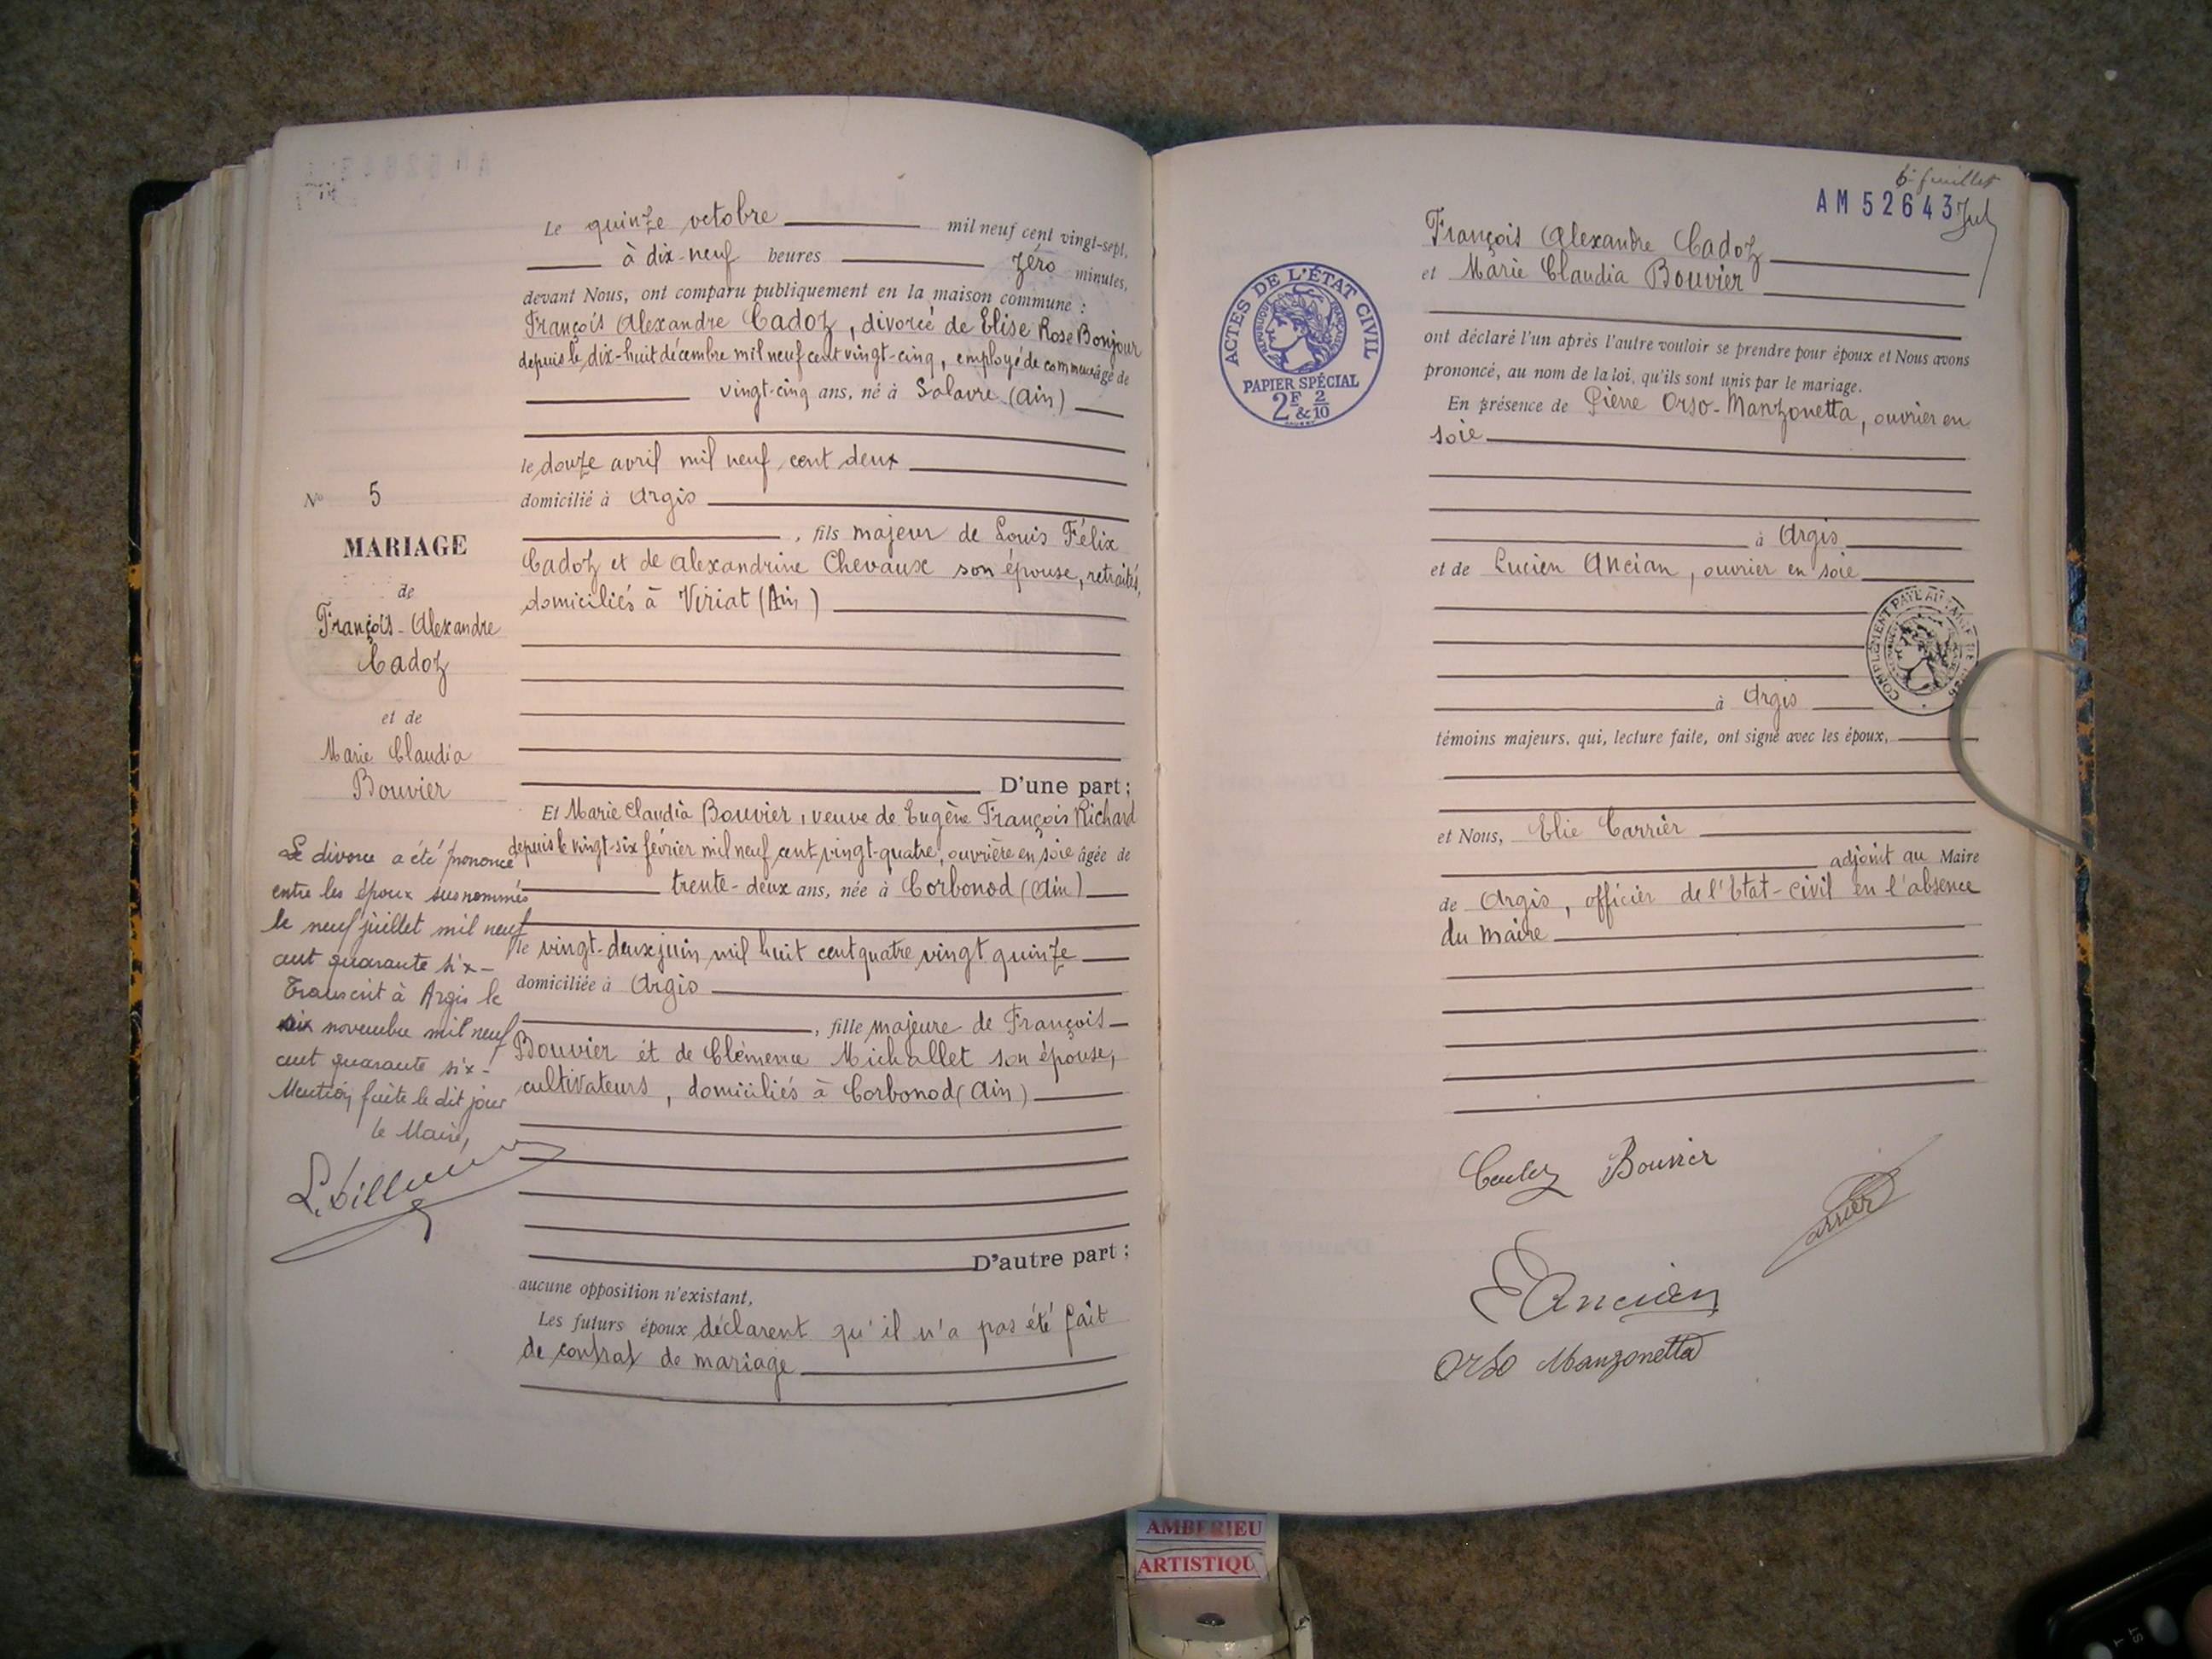 Le quinze octobre mil neuf cent vingt-sept,
à dix-neuf heures zéro minutes,
devant Nous, ont comparu publiquement en la maison commune :
François Alexandre Cadoz, divorcé de Elise Rose Bonjour
depuis le dix-huit décembre mil neuf cent vingt-cinq, employé de commerce âgé de
vingt-cinq ans, né à Salavre (Ain)
le douze avril mil neuf cent deux
domicilié à Argis
, fils majeur de Louis Félix
Cadoz et de Alexandrine Chevaux son épouse, retraités,
domiciliés à Viriat (Ain)
D'une part ;
Et Marie Claudia Bouvier, veuve de Eugène François Richard
depuis le vingt-six février mil neuf cent vingt-quatre, ouvrière en soie âgée de
trente-deux ans, née à Corbonod (Ain)
le vingt-deux juin mil huit cent quatre vingt quinze
domiciliée à Argis
, fille majeure de François
Bouvier et de Clémence Michallet son épouse,
cultivateurs, domiciliés à Corbonod (Ain)
D'autre part ;
aucune opposition n'existant,
Les futurs époux déclarent qu'il n'a pas été fait
de contrat de mariage
No 5
MARIAGE
de
François-Alexandre
Cadoz
et de
Marie Claudia
Bouvier
Le divorce a été prononcé
entre les époux susnommés
le neuf juillet mil neuf
cent quarante six-
Transcrit à Argis le
six novembre mil neuf
cent quarante six-
Mention faite le dit jour
le Maire,
6e feuillet
AM 52643
François Alexandre Cadoz
et Marie Claudia Bouvier
ont déclaré l'un après l'autre vouloir se prendre pour époux et Nous avons
prononcé, au nom de la loi, qu'ils sont unis par le mariage.
En présence de Pierre Orso-Manzonetta, ouvrier en
soie
à Argis
et de Lucien Ancian, ouvrier en soie
à Argis
témoins majeurs, qui, lecture faite, ont signé avec les époux,
et Nous, Elie Carrier
adjoint au Maire
de Argis, officier de l'Etat-civil en l'absence
du maire
Cadoz Bouvier
Carrier
Ancian
Orso Manzonetta
ACTES DE L'ÉTAT CIVIL
RÉPUBLIQUE FRANÇAISE
PAPIER SPÉCIAL
2F & 2/10
COMPLÉMENT PAYÉ AU
AMBERIEU
ARTISTIQU